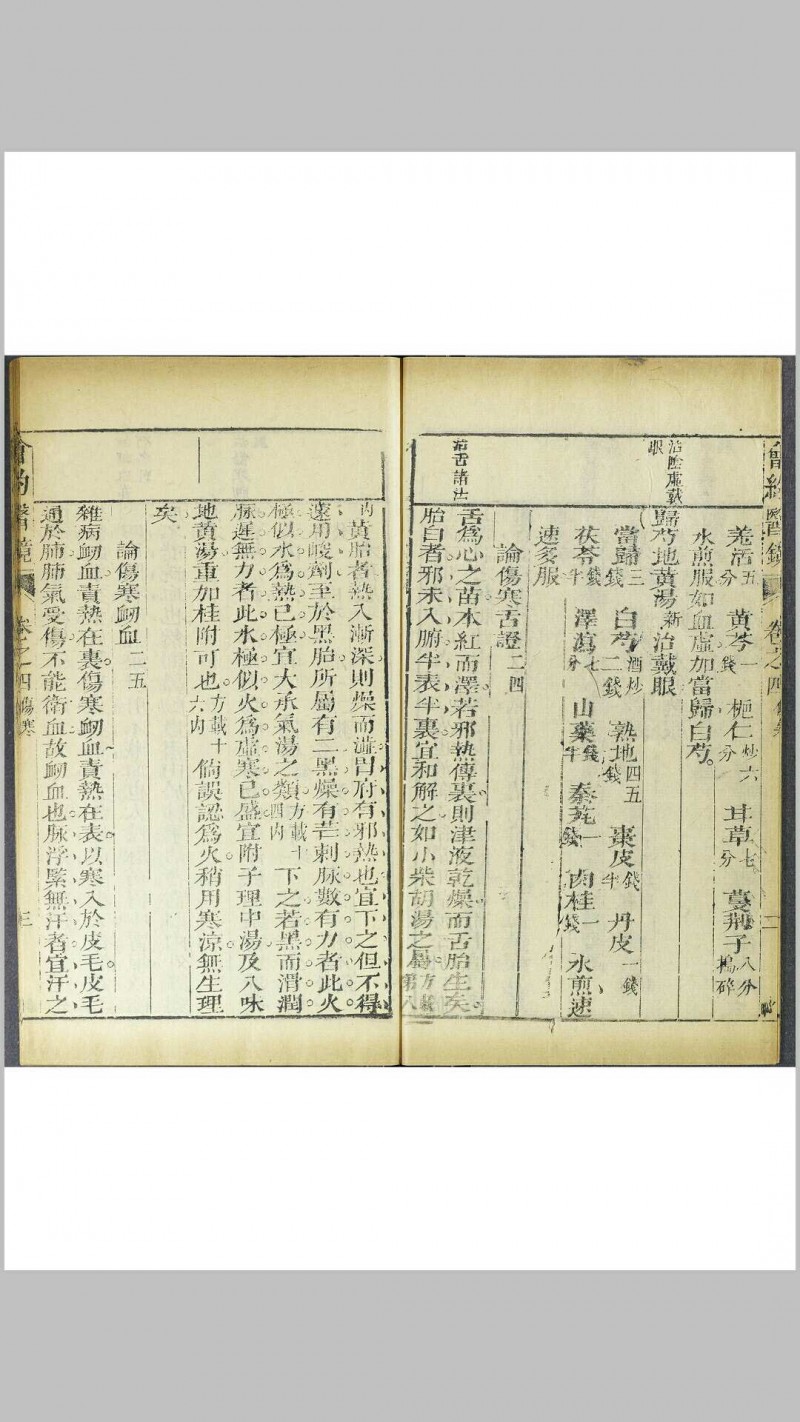 羌活五分 黃芩一錢 梔仁炒六分 甘草七分 蔓荊子八分搗碎
水煎服如血虛加當歸白芍。
治陰虛戴眼
歸芍地黃湯新治戴眼
當歸三錢 白芍酒炒二錢 熟地四五錢 棗皮錢半 丹皮一錢
茯苓錢半 澤瀉七分 山藥錢半 秦艽一錢 肉桂一錢 水煎速
速多服
論傷寒舌證二四
治舌諸法
舌為心之苗本紅而澤若邪熱傳裏則津液乾燥而舌胎生矣
胎白者邪未入腑半表半裏宜和解之如小柴胡湯之屬方載第八
內黃胎者熱入漸深則燥而澁胃府有邪熱也宜下之但不得
遽用峻劑至於黑胎所屬有二黑燥有芒刺脉數有力者此火
極似水為熱已極宜大承氣湯之類方載十四內下之若黑而滑潤
脉遲無力者此水極似火為虛寒已盛宜附子理中湯及八味
地黃湯重加桂附可也方載十六內倘誤認為火稍用寒涼無生理
矣
論傷寒衂血二五
雜病衂血責熱在裏傷寒衂血責熱在表以寒入於皮毛皮毛
通於肺肺氣受傷不能衛血故衂血也脉浮緊無汗者宜汗之
會約醫鏡 卷之四傷寒 三